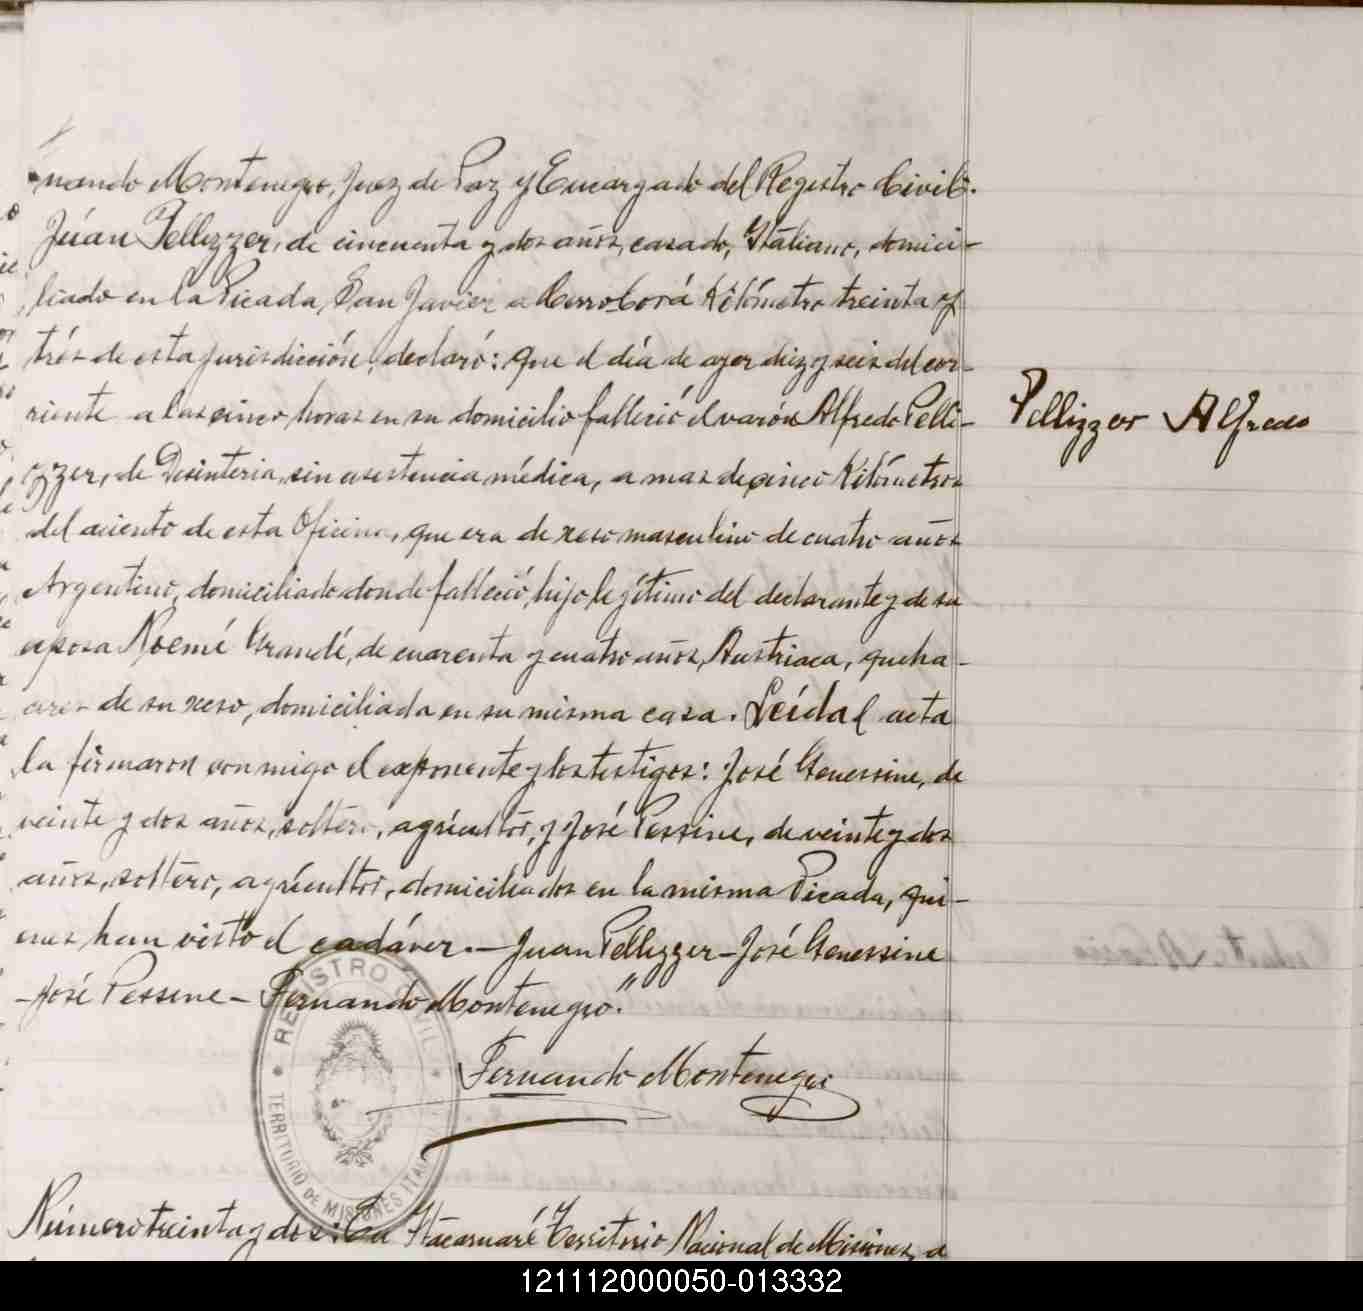 nando Montenegro, Juez de Paz y Encargado del Registro Civil:
Júan Pellizzer, de cincuenta y dos años, casado, Italiano, domici-
liado en la Picada San Javier a Cerro Corá Kilómetro treinta y
trés de esta jurisdicción, declaró: que el día de ayer diez y seis del cor-
riente a las cinco horas en su domicilio falleció el varón Alfredo Pelli-
zzer, de Desinteria, sin asistencia médica, a mas de cinco Kilómetros
del aciento de esta Oficina, que era de sexo masculino de cuatro años
Argentino, domiciliado donde falleció, hijo legítimo del declarante y de su
esposa Noemé Grandé, de cuarenta y cuatro años, Austriaca, queha-
ceres de su sexo, domiciliada en su misma casa. Leída l acta
la firmaron conmigo el exponente y los testigos: José Genessine, de
veinte y dos años, soltero, agricultor, y José Pessine, de veinte y dos
años, soltero, agricultor, domiciliados en la misma Picada, qui-
enes han visto el cadáver.- Juan Pellizzer- José Genessine
-José Pessine- Fernando Montenegro."
Fernando Montenegro
Pellizzer Alfredo
REGISTRO CIVIL
TERRITORIO DE MISIONES
Número treinta y dos: En Itacaruaré Territorio Nacional de Misiones, a
121112000050-013332